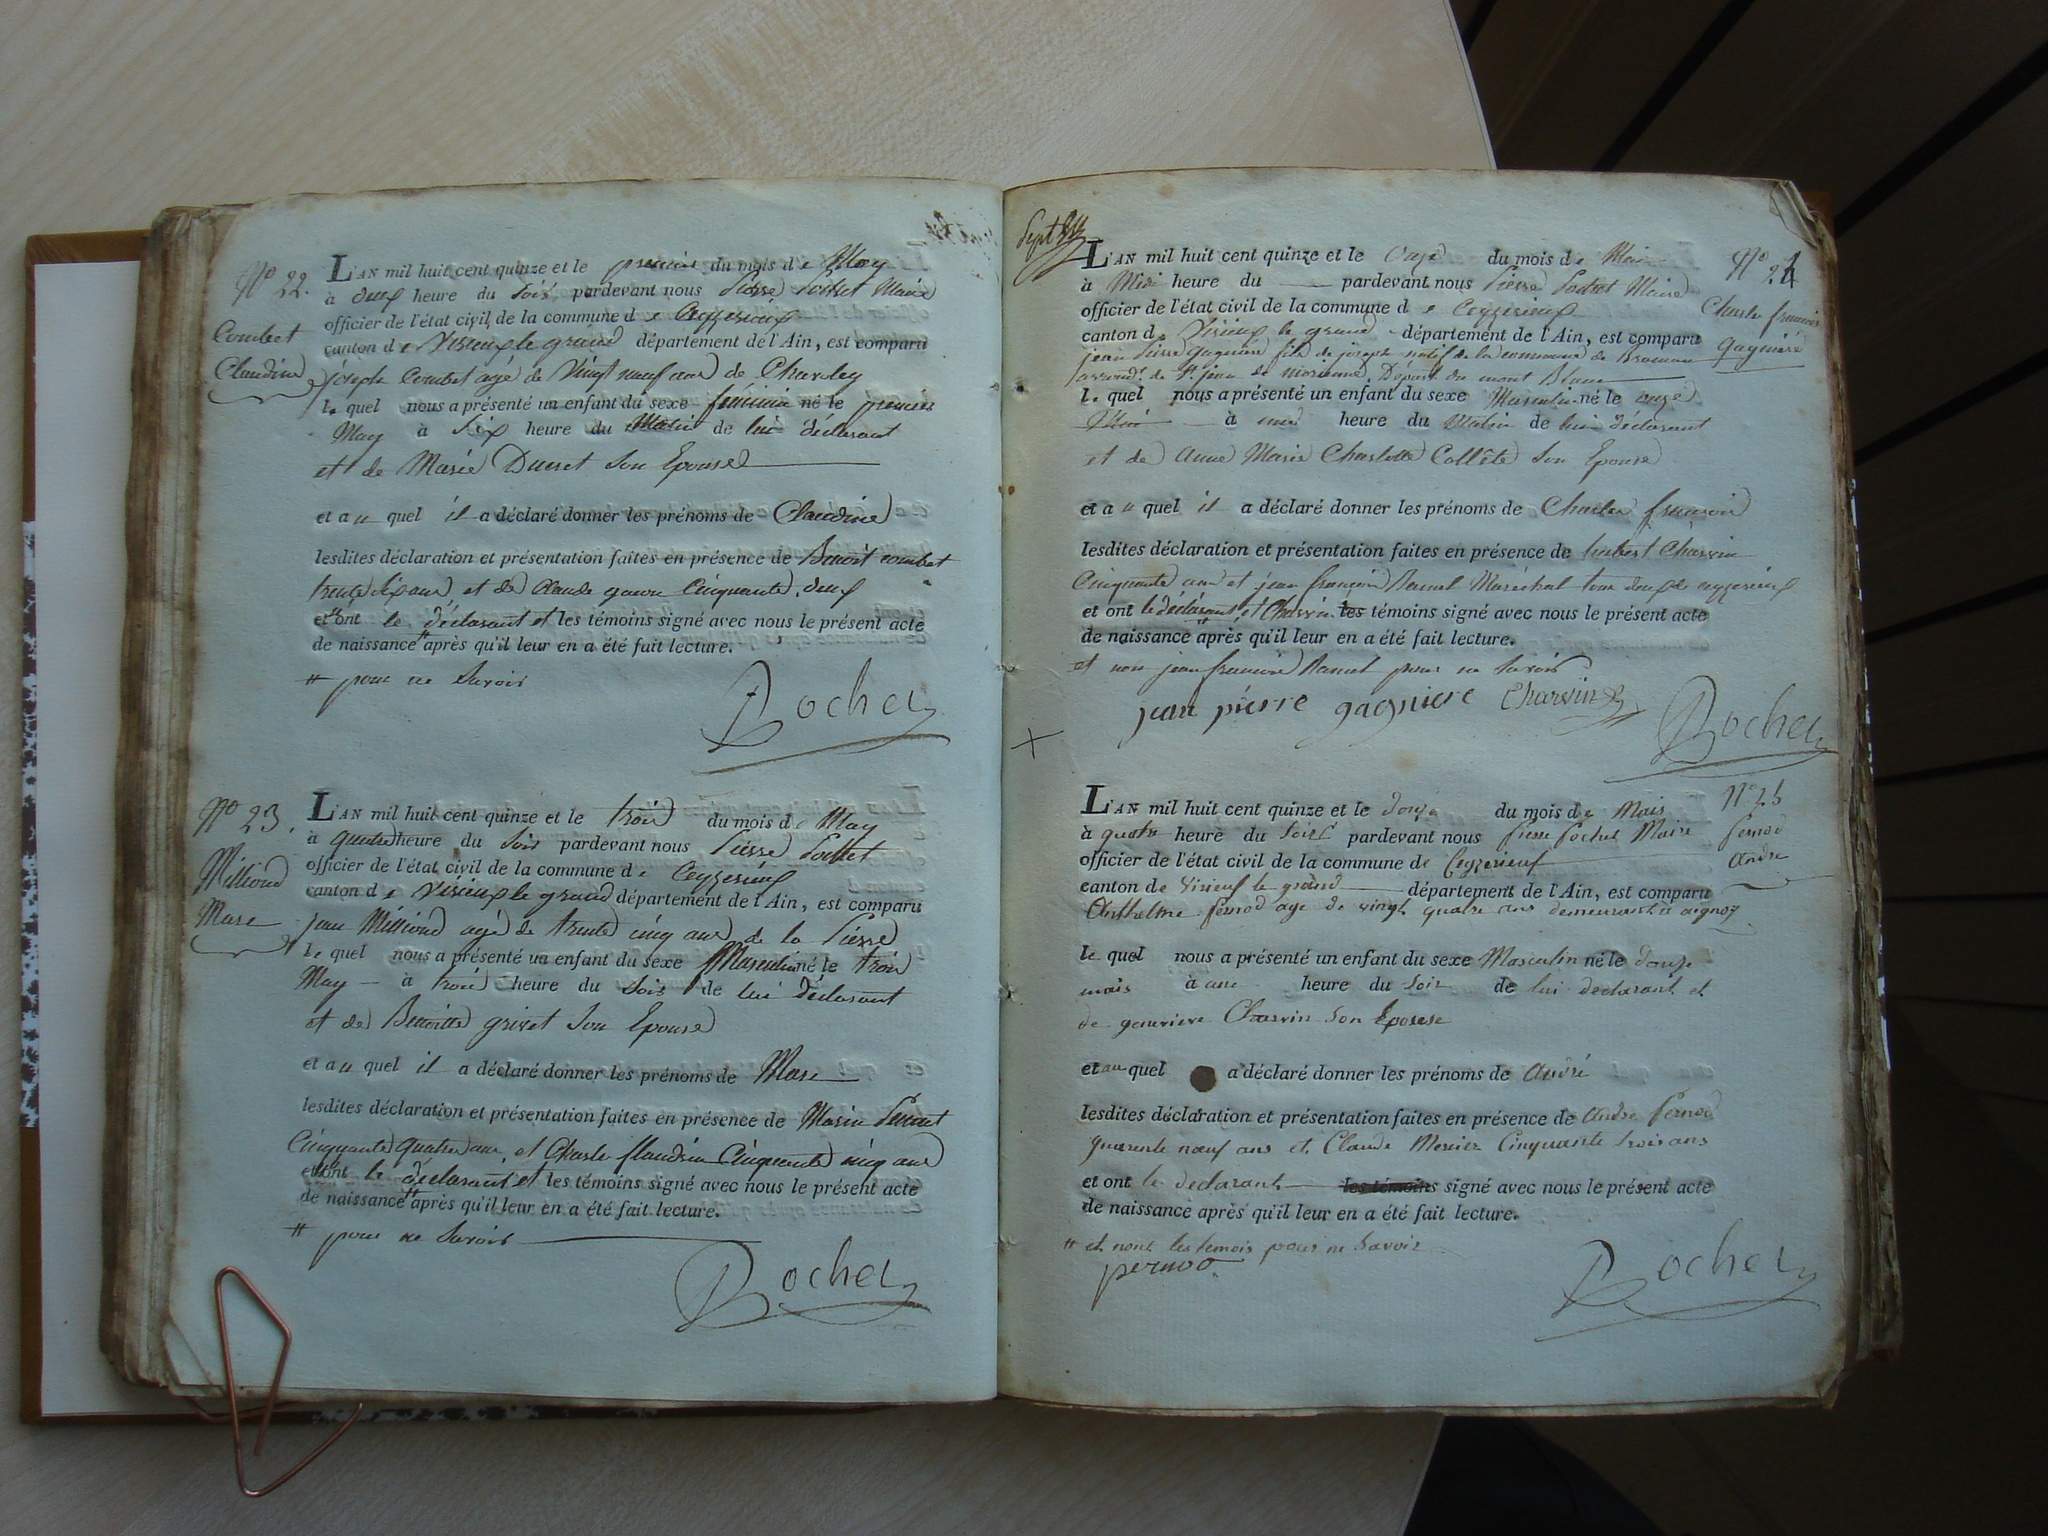 N° 22.
Combet
Claudine
L'AN mil huit cent quinze et le premier du mois de May
à deux heure du Soir pardevant nous Pierre Pochet Maire
officier de l'état civil de la commune de Ceyzerieux
canton de Virieux le grand département de l'Ain, est comparu
joseph Combet agé de Vingt neuf ans de Charley
le quel nous a présenté un enfant du sexe féminin né le premier
May à Six heure du Matin de lui déclarant
et de Marie Ducret Son Epouse
et au quel il a déclaré donner les prénoms de Claudine
lesdites déclaration et présentation faites en présence de Benoit combet
trente six ans et de Claude cinquante deux
et ont le déclarant et les témoins signé avec nous le présent acte
de naissance après qu'il leur en a été fait lecture.
# pour ne Savoir
Pochet
N° 23.
Milliond
Marc
L'AN mil huit cent quinze et le trois du mois de May
à quatre heure du Soir pardevant nous Pierre Pochet
officier de l'état civil de la commune de Ceyzerieux
canton de Virieux le grand département de l'Ain, est comparu
jean Milliond agé de trente cinq ans de la Pierre
le quel nous a présenté un enfant du sexe Masculin né le trois
May à trois heure du Soir de lui déclarant
et de Benoitte grivet Son Epouse
et au quel il a déclaré donner les prénoms de Marc
lesdites déclaration et présentation faites en présence de Marin
Cinquante quatre ans, et Charle flandrin Cinquante cinq ans
et ont le déclarant et les témoins signé avec nous le présent acte
de naissance après qu'il leur en a été fait lecture.
# pour ne Savoir
Pochet
Sept
N° 24
Charle francois
Gagniére
L'AN mil huit cent quinze et le onze du mois de Mai
à Midi heure du pardevant nous Pierre Pochet Maire
officier de l'état civil de la commune de Ceyzerieux
canton de Virieux le grand département de l'Ain, est comparu
jean Pierre Gagniére fils de joseph natif de la commune de Bramans
arrond.t de St jean de morienne, Départ. du mont Blanc
le quel nous a présenté un enfant du sexe Masculin né le onze
à une heure du Matin de lui déclarant
et de anne Marie Charlotte Collète Son Epouse
et au quel il a déclaré donner les prénoms de Charle francois
lesdites déclaration et présentation faites en présence de hubert Charvin
Cinquante ans et jean francois Maréchal tous deux de ceyzerieux
et ont le déclarant et Charvin les témoins signé avec nous le présent acte
de naissance après qu'il leur en a été fait lecture.
et non jean francois pour ne Savoir
jean pierre gagniere Charvin
Pochet
N° 25
Pernod
André
L'AN mil huit cent quinze et le douze du mois de Mais
à quatre heure du Soir pardevant nous Pierre Pochet Maire
officier de l'état civil de la commune de Ceyzerieux
canton de Virieux le grand département de l'Ain, est comparu
Anthelme Pernod age de vingt quatre ans demeurant à aignoz
le quel nous a présenté un enfant du sexe Masculin né le douze
mais à une heure du Soir de lui declarant et
de genevieve Charvin Son Epouse
et au quel a déclaré donner les prénoms de André
lesdites déclaration et présentation faites en présence de andre Pernod
quarente neuf ans et Claude Mercier Cinquante trois ans
et ont le declarant les témoins signé avec nous le présent acte
de naissance après qu'il leur en a été fait lecture.
# et nont les temois pour ne Savoir
pernod
Pochet